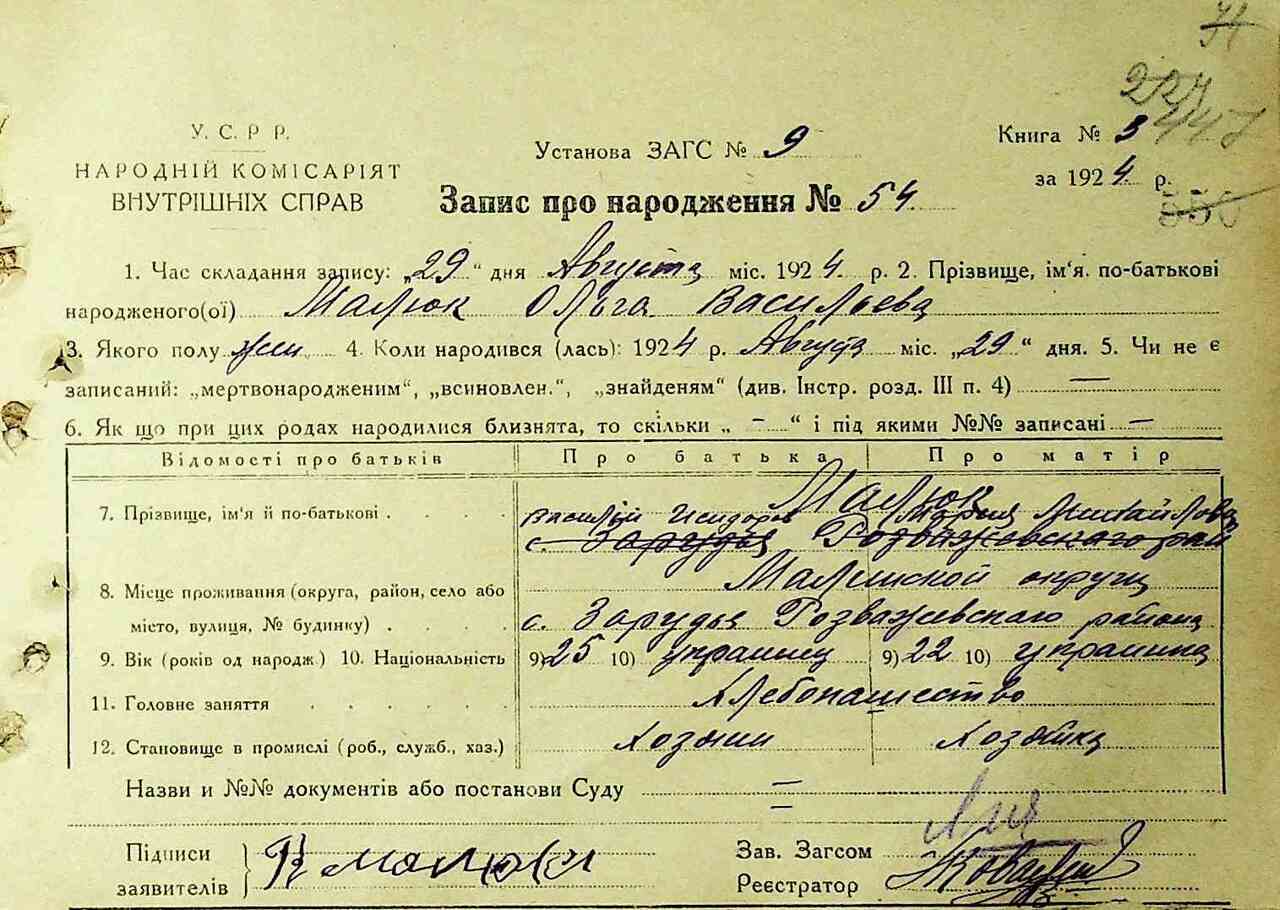 У. С. Р. Р.
НАРОДНІЙ КОМІСАРІЯТ
ВНУТРІШНІХ СПРАВ
Установа ЗАГС № 9
Книга № 3
за 1924 р.
Запис про народження № 54
1. Час складання запису: „29“ дня Августа міс. 1924 р. 2. Прізвище, ім'я. по-батькові
народженого(ої) Малюк Ольга Васильева
3. Якого полу жен 4. Коли народився (лась): 1924 р. Августа міс. „29“ дня. 5. Чи не є
записаний: „мертвонародженим“, „всиновлен.“, „знайденям“ (див. Інстр. розд. III п. 4) —
6. Як що при цих родах народилися близнята, то скільки „ – “ і під якими №№ записані —
Відомості про батьків Про батька Про матір
Малюк
7. Прізвище, ім'я й по-батькові Василій Исидоров Мария Михайлова
с. Зарудья Розважевского рай
Малинской округи
8. Місце проживання (округа, район, село або
місто, вулиця, № будинку) с. Зарудья Розважевскаго района
9. Вік (років од народж) 10. Національність 9) 25 10) украинец 9) 22 10) украинка
11. Головне заняття Хлебопашество
12. Становище в промислі (роб., служб., хаз.) Хозяин Хозяйка
Назви и №№ документів або постанови Суду =
Підписи
заявителів В Малюк
Зав. Загсом
Реєстратор